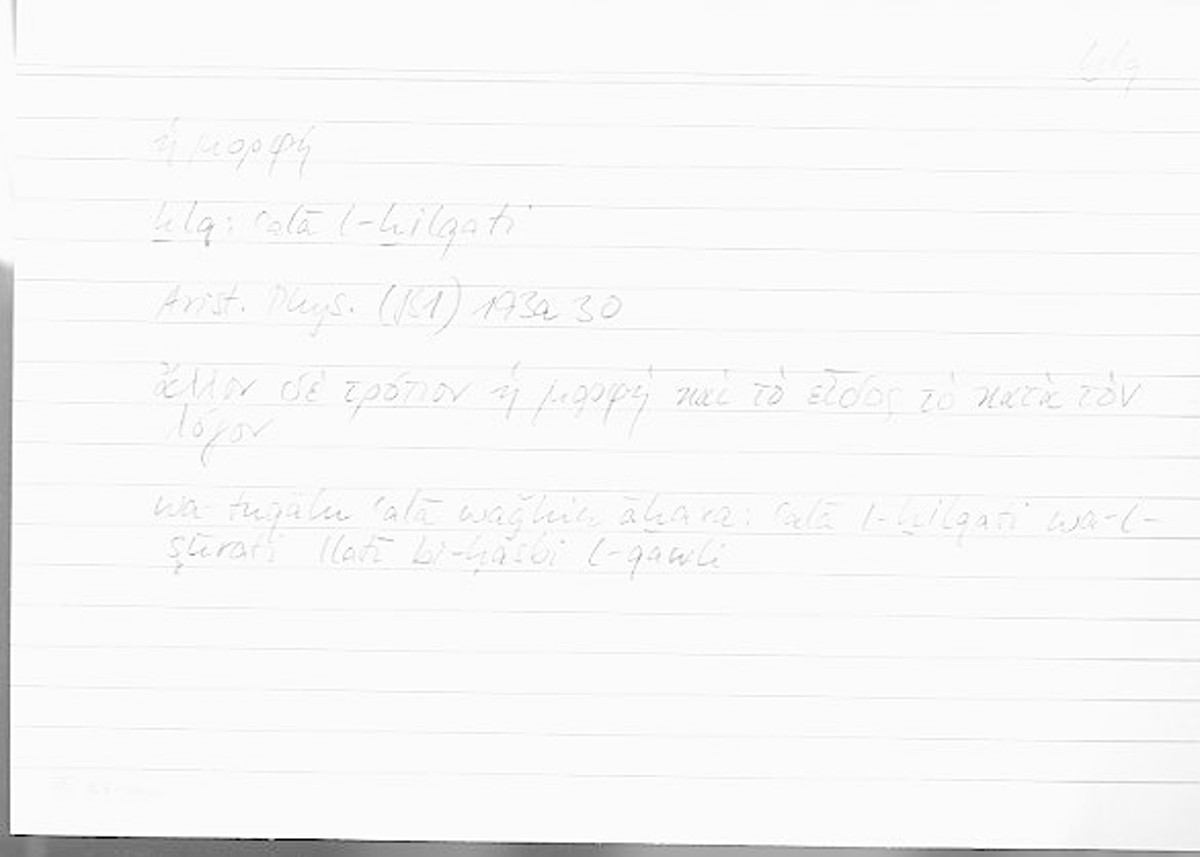 ḫlq
ἡ μορφή
ḫlq: ʿalā l-ḫilqati
Arist. Phys. (B1) 193a 30
ἄλλον δὲ τρόπον ἡ μορφὴ καὶ τὸ εἶδος τὸ κατὰ τὸν
λόγον
wa-tuqālu ʿalā waǧhin āḫara: ʿalā l-ḫilqati wa-l-
ṣūrati llatī bi-ḥasbi l-qawli